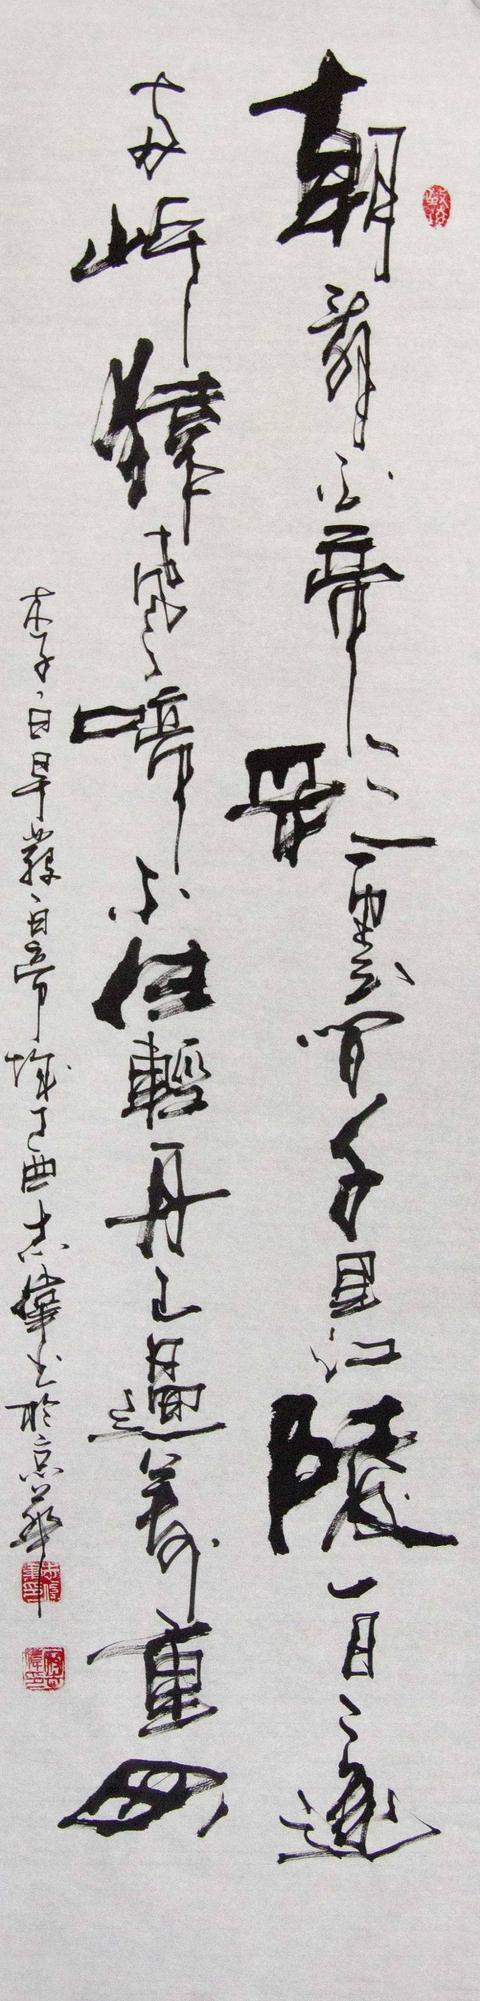 朝辭白帝彩雲間千里江陵一日還
兩岸猿聲啼不住輕舟已過萬重山
李白早發白帝城丁酉志偉書於京華